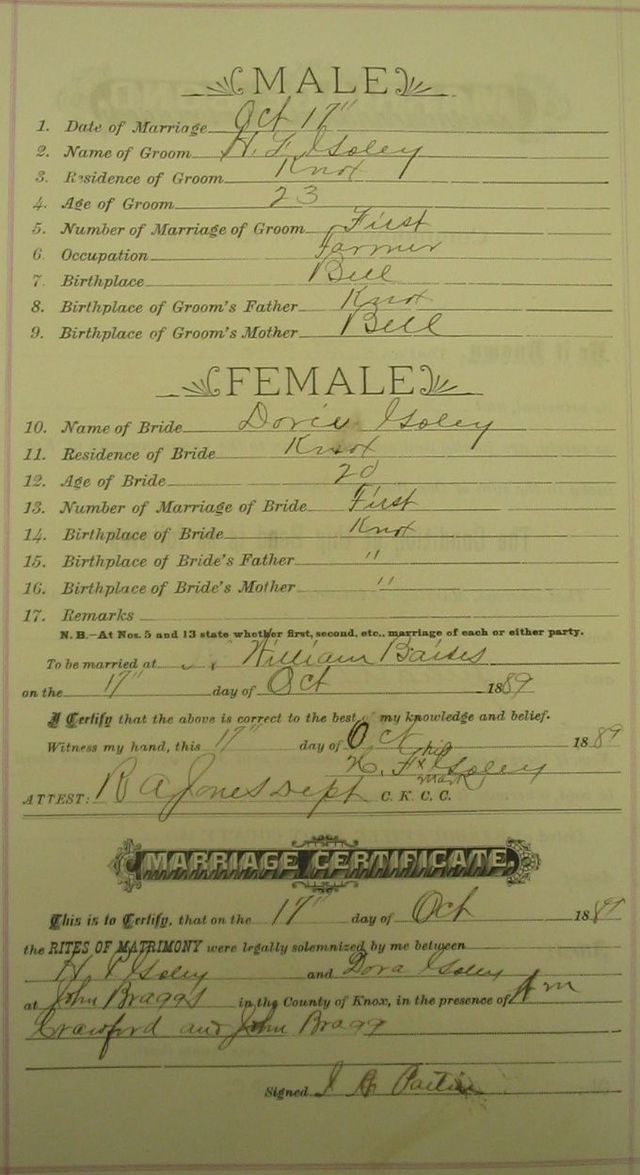 MALE
1. Date of Marriage Oct 17"
2. Name of Groom H. F. Isoley
3. Residence of Groom Knox
4. Age of Groom 23
5. Number of Marriage of Groom First
6. Occupation Farmer
7. Birthplace Bell
8. Birthplace of Groom's Father Knox
9. Birthplace of Groom's Mother Bell
FEMALE
10. Name of Bride Isoley
11. Residence of Bride Knox
12. Age of Bride 20
13. Number of Marriage of Bride First
14. Birthplace of Bride Knox
15. Birthplace of Bride's Father "
16. Birthplace of Bride's Mother "
17. Remarks
N. B.—At Nos. 5 and 13 state whether first, second, etc., marriage of each or either party.
To be married at William
on the 17" day of Oct 1889
I Certify that the above is correct to the best of my knowledge and belief.
Witness my hand, this 17" day of Oct 1889
H. F. his x mark Isoley
ATTEST: R A Jones Dept C. K. C. C.
MARRIAGE CERTIFICATE.
This is to Certify, that on the 17" day of Oct 1889
the RITES OF MATRIMONY were legally solemnized by me between
Isoley and Dora Isoley
at John Braggs in the County of Knox, in the presence of Wm
Crawford and John Bragg
Signed